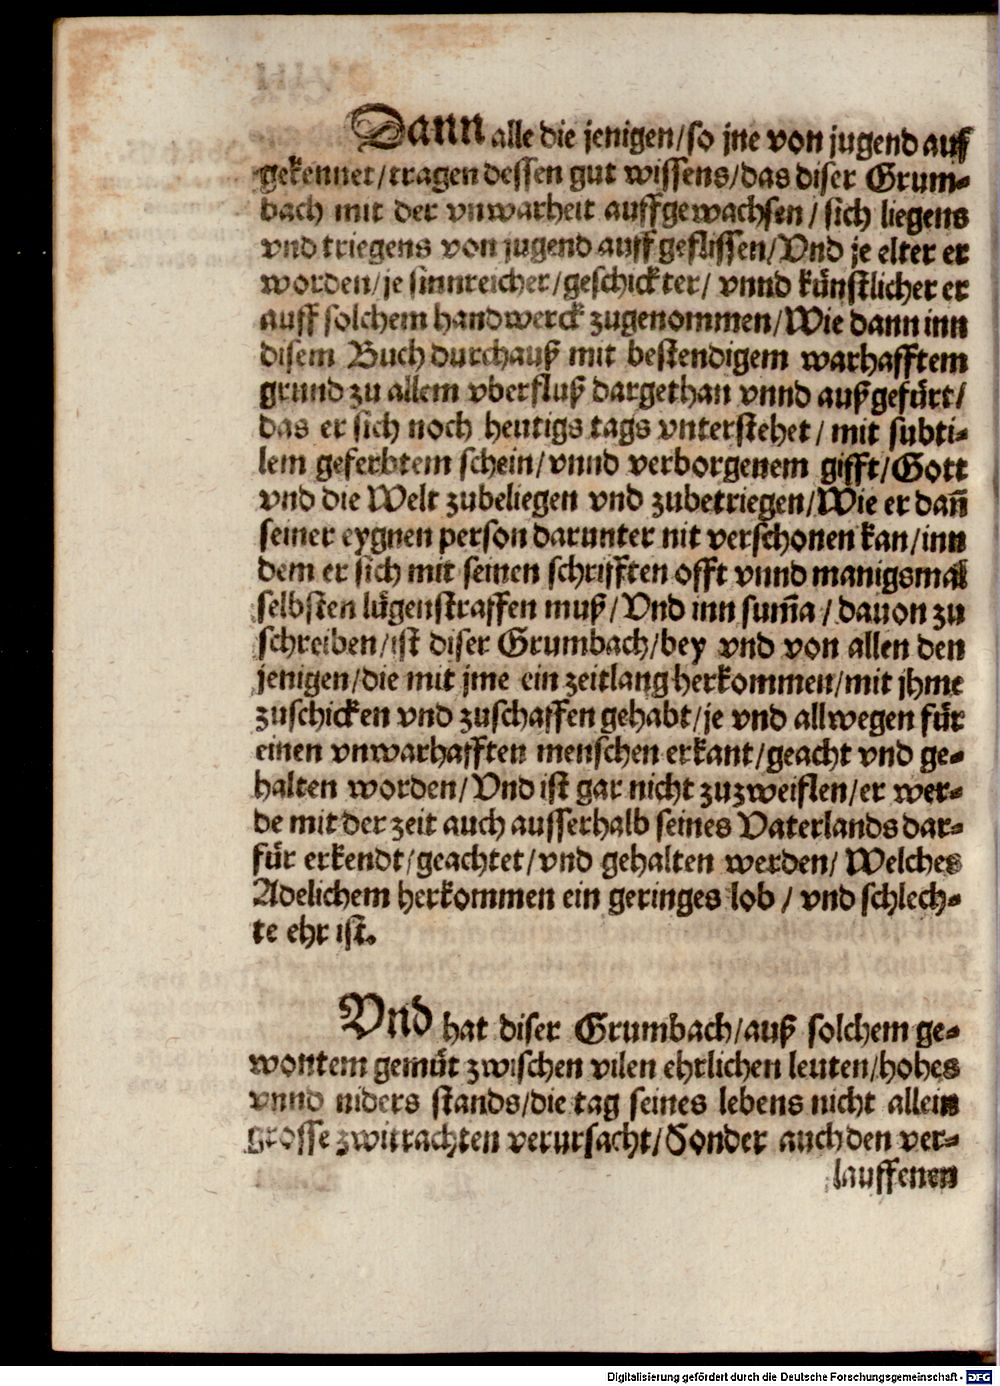 Dann alle die jenigen/so jne von jugend auff
gekennet/tragen dessen gut wissens/das diser Grum-
bach mit der vnwarheit auffgewachsen/ sich liegens
vnd triegens von jugend auff geflissen/Vnd je elter er
worden/je sinnreicher/geschickter/ vnnd künstlicher er
auff solchem handwerck zugenommen/Wie dann inn
disem Buch durchauß mit bestendigem warhafftem
grund zu allem vberfluß dargethan vnnd außgefürt/
das er sich noch heutigs tags vnterstehet/ mit subti-
lem geferbtem schein/vnnd verborgenem gifft/Gott
vnd die Welt zubeliegen vnd zubetriegen/Wie er dañ
seiner eygnen person darunter nit verschonen kan/inn
dem er sich mit seinen schrifften offt vnnd manigsmal
selbsten lügenstraffen muß/Vnd inn sum̃a/dauon zu
schreiben/ist diser Grumbach/bey vnd von allen den
jenigen/die mit jme ein zeitlang herkommen/mit jhme
zuschicken vnd zuschaffen gehabt/je vnd allwegen für
einen vnwarhafften menschen erkant/geacht vnd ge-
halten worden/Vnd ist gar nicht zuzweiflen/er wer-
de mit der zeit auch ausserhalb seines Vaterlands dar-
für erkendt/geachtet/vnd gehalten werden/Welches
Adelichem herkommen ein geringes lob/ vnd schlech-
te ehr ist.
Vnd hat diser Grumbach/auß solchem ge-
wontem gemüt zwischen vilen ehrlichen leuten/hohes
vnnd niders stands/die tag seines lebens nicht allein
grosse zwitrachten verursacht/Sonder auch den ver-
lauffenen
Digitalisierung gefördert durch die Deutsche Forschungsgemeinschaft - DFG